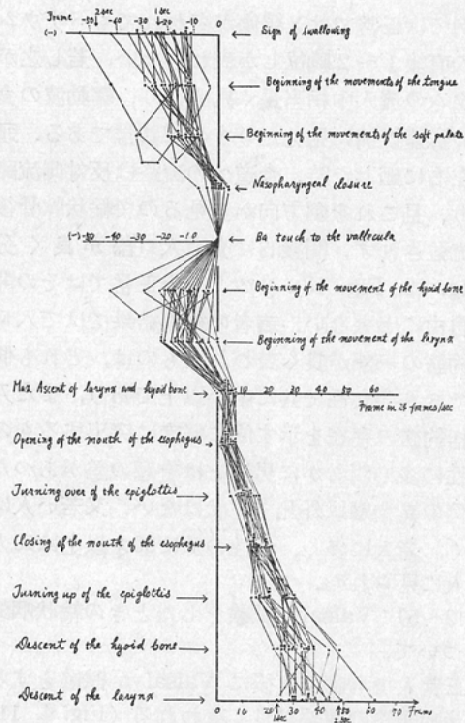 Frame 2 sec 1 sec
-50 -40 -30 -20 -10 0
(-) Sign of swallowing
Beginning of the movements of the tongue
Beginning of the movements of the soft palate
Nasopharyngeal closure
(-) -50 -40 -30 -20 -10 Ba touch to the vallecula
Beginning of the movement of the hyoid bone
Beginning of the movement of the larynx
Max. Ascent of larynx and hyoid bone 10 20 30 40 50 60
Frame in 25 frames/sec
Opening of the mouth of the esophagus
Turning over of the epiglottis
Closing of the mouth of the esophagus
Turning up of the epiglottis
Descent of the hyoid bone
Descent of the larynx
0 10 20 30 40 50 60 70 Frame
1 sec 2 sec